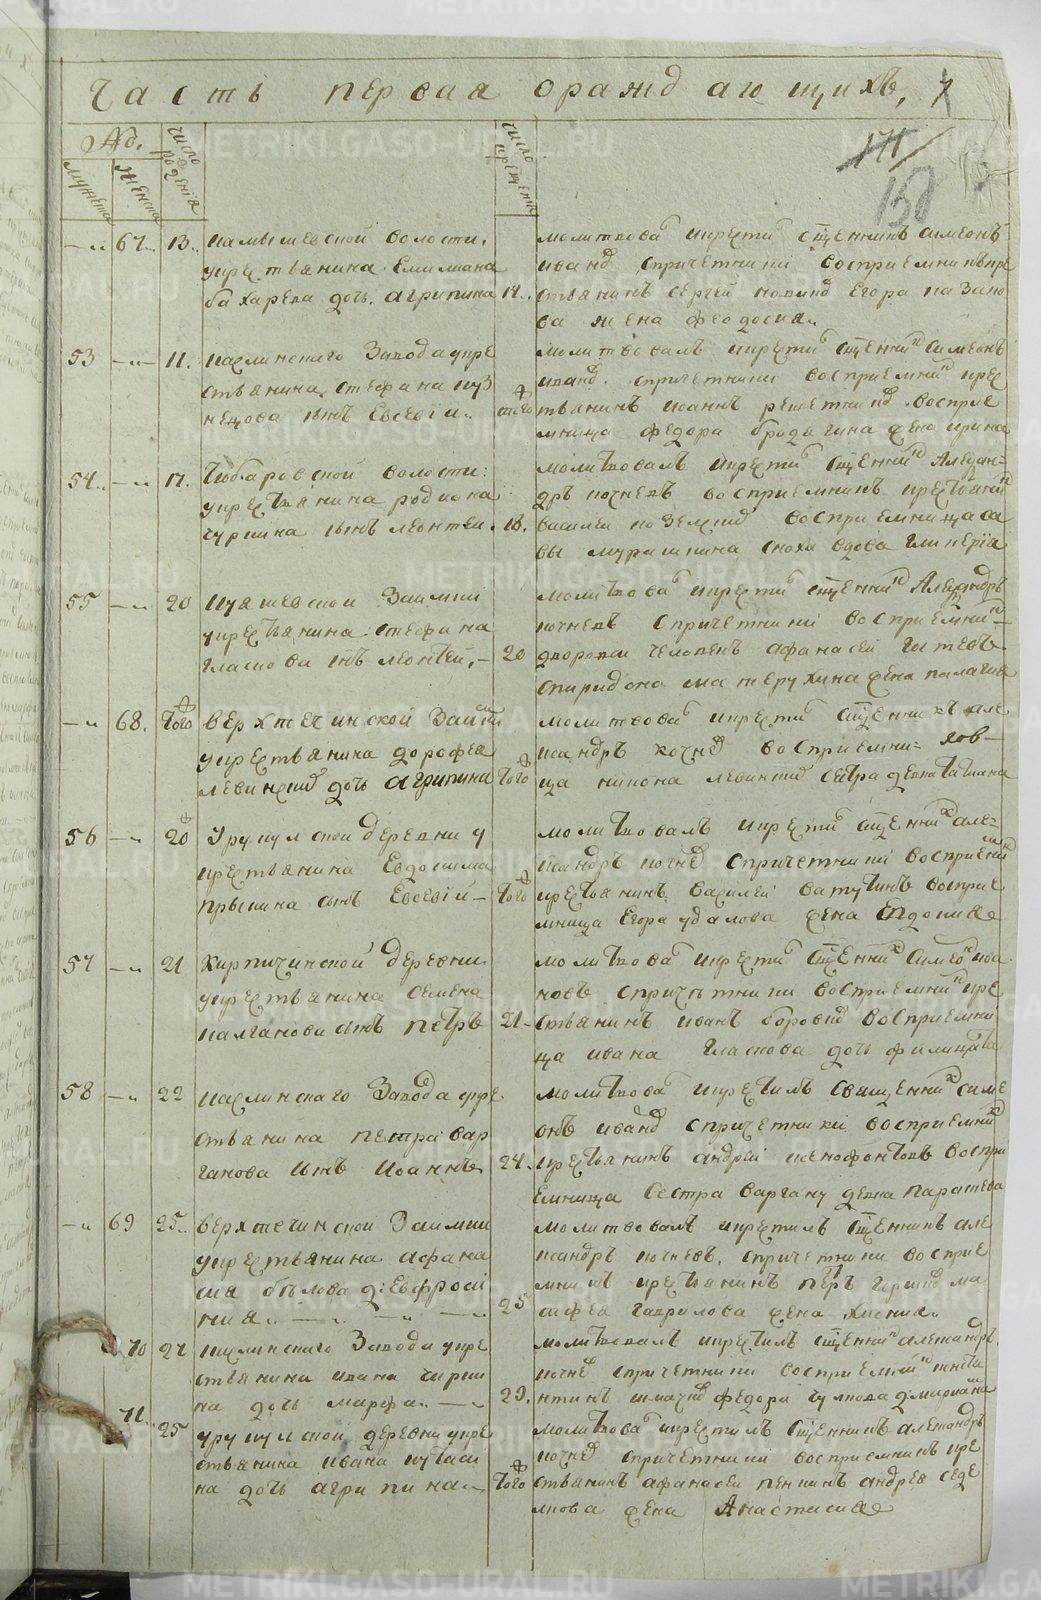 Часть первая о раждающихъ,
171
158
№.
мужеска
женска
число рождения
число крещения
67. 13. камышевской волости,
у крестьянина Емилиана
бахарева дочь агрипина 14.
молитвова и крести сщенникъ симеонъ
иванд спричетники восприемникъ кре
стьянинъ сергей Егора казано
ва жена феодосиа.
53 11. каслинскаго завода у кре
стьянина стефана куз
нецова сынъ Евсевiй. того
молитвовалъ и крести сщенник симеонъ
иванд. спричетники восприемник крес
тьянинъ иоаннъ решетник восприе
мница федора жена ирина
54. 17. волости:
у крестьянина родиона
чуркина сынъ леонтей. 18.
молитвовалъ и крести сщенник Алексан
дръ кочневъ восприемникъ крестьянин
василей восприемница са
вы мурашкина сноха вдова гликерiа
55 20 заимки
у крестьянина стефана
гласкова снъ леонтей, 20
молитвова и крести сщенник Александръ
кочневъ спричетники восприемник
дворовой человекъ афанасей
спиридона матерухина жена палагиа
68. того верхтечинской заимки
у крестьянина дорофеа
левинских дочь агрипина того
молитвова и крести сщенникъ але
ксандръ кочнев восприемни-
ца никона левинских сестра девка татиана
56 20 Урукулской деревни у
крестьянина Евдокима
прыкина сынъ Евсевiй того
молитвовалъ и крести сщенник але
ксандръ кочнев спричетники восприемник
крестьянинъ василей ватутинъ восприе
мница Егора удалова жена
57 21 Кирпичинской деревни
у крестьянина семена
калганова снъ петръ 21
молитвова и крести сщенник симеон ива
новъ спричетники восприемник кре
стьянинъ иванъ боровин восприемни
ца ивана гласкова дочь филицата
58 22 каслинскаго завода у кре
стьянина петра вар
ганова сынъ иоаннъ 24.
молитвова и крестилъ священник симе
онъ иванд спричетники восприемник
крестьянинъ андрей ксенофонтовъ воспри
емница сестра варгану девка парасковеа
69 25. верхтечинской заимки
у крестьянина афана
сиа белова д: Евфроси
ниа. 25
молитвовалъ и крестилъ сщенникъ але
ксандръ кочневъ, спричетники восприе
мникъ крестьянинъ петръ ма
тфеа гаврилова жена ксениа.
70 27 каслинскаго завода у кре
стьянина ивана чирки
на дочь марфа. 29.
молитвовалъ и крестилъ сщенник александръ
кочнев спричетники восприемник конста
нтинъ федора
71. 25 урукулской деревни у кре
стьянина ивана кутаси
на дочь агрипина того
молитвова и крестилъ сщенникъ александръ
кочнев спричетники восприемникъ кре
стьянинъ афанасей пенкинъ андреа седе
лкова жена Анастасиа